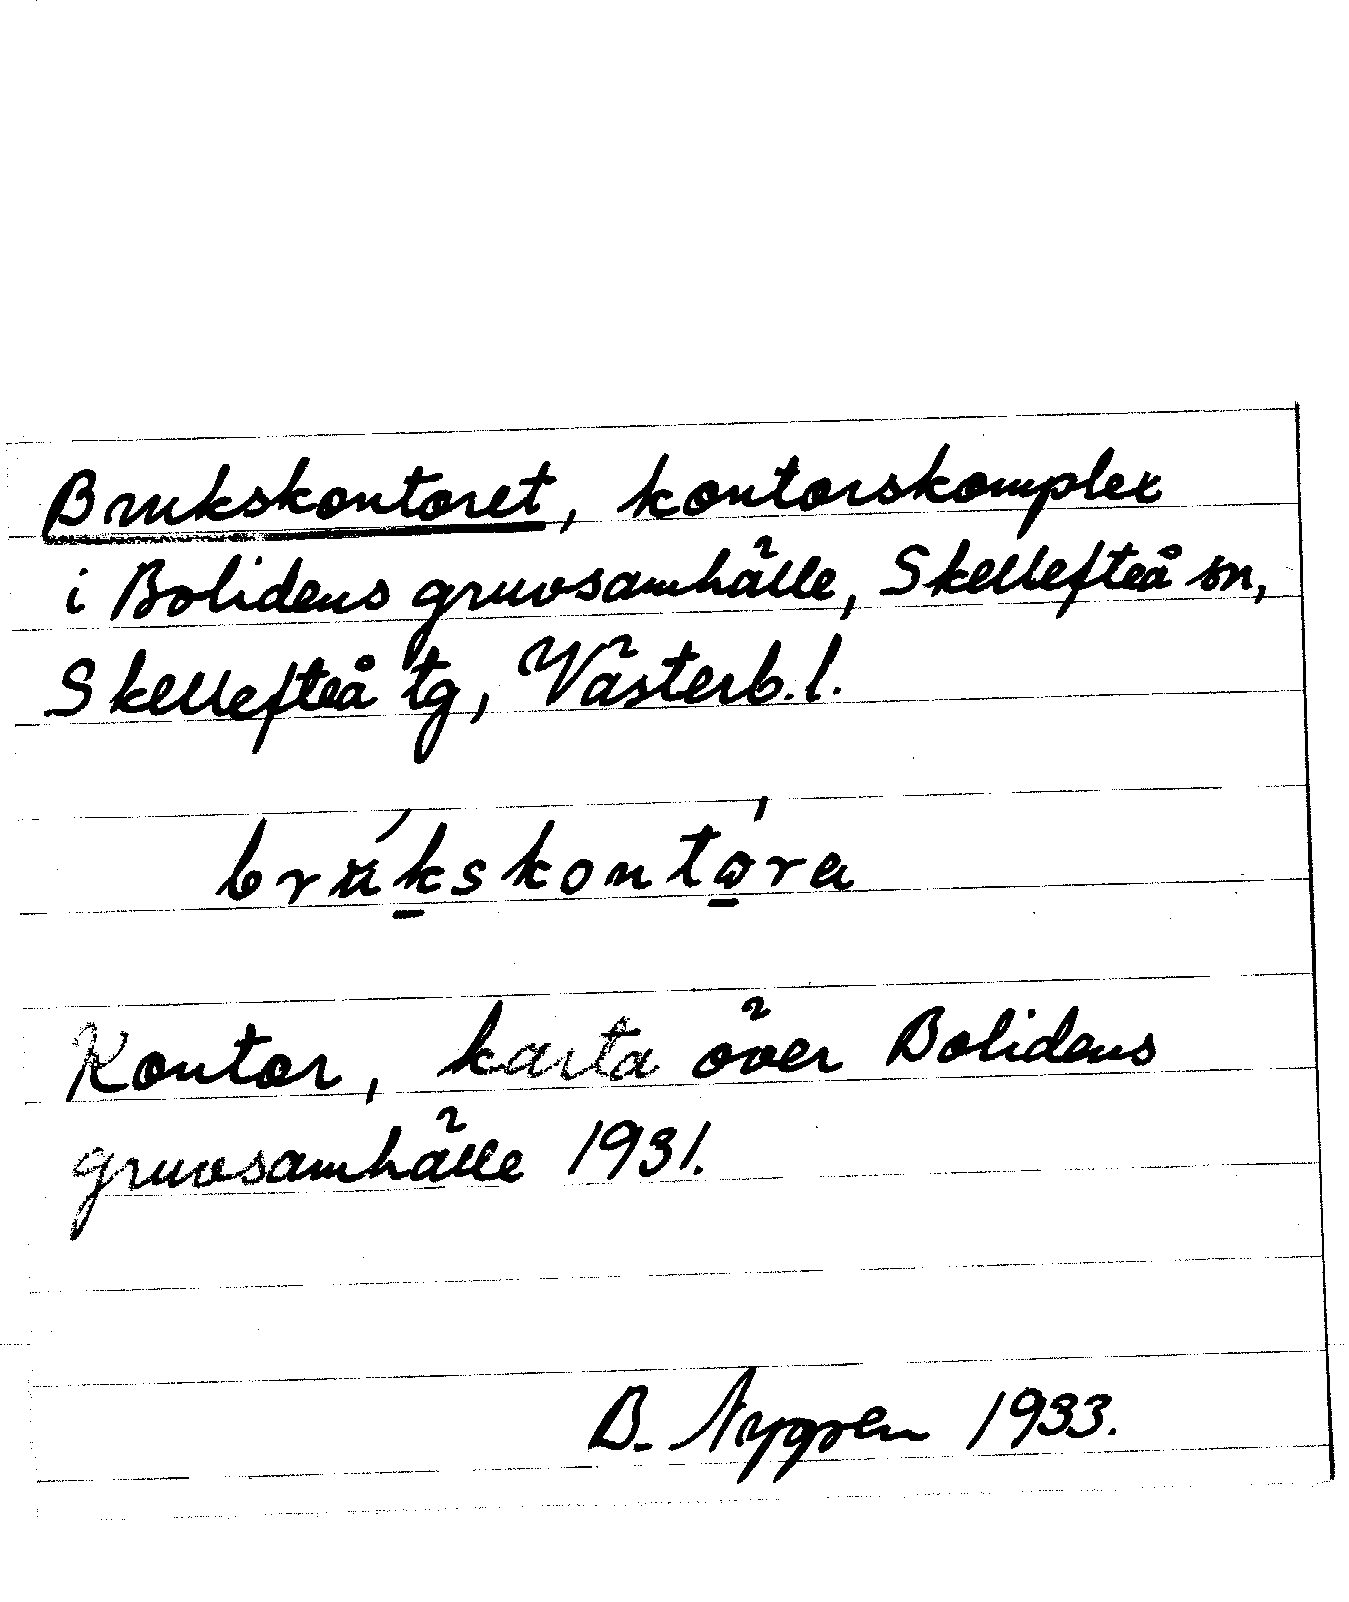 Brukskontoret, kontorskomplex
i Bolidens gruvsamhälle, Skellefteå sn,
Skellefteå tg, Västerb. l.
brúkskontóra
Kontor, karta över Bolidens
gruvsamhälle 1931.
B. Nygren 1933.